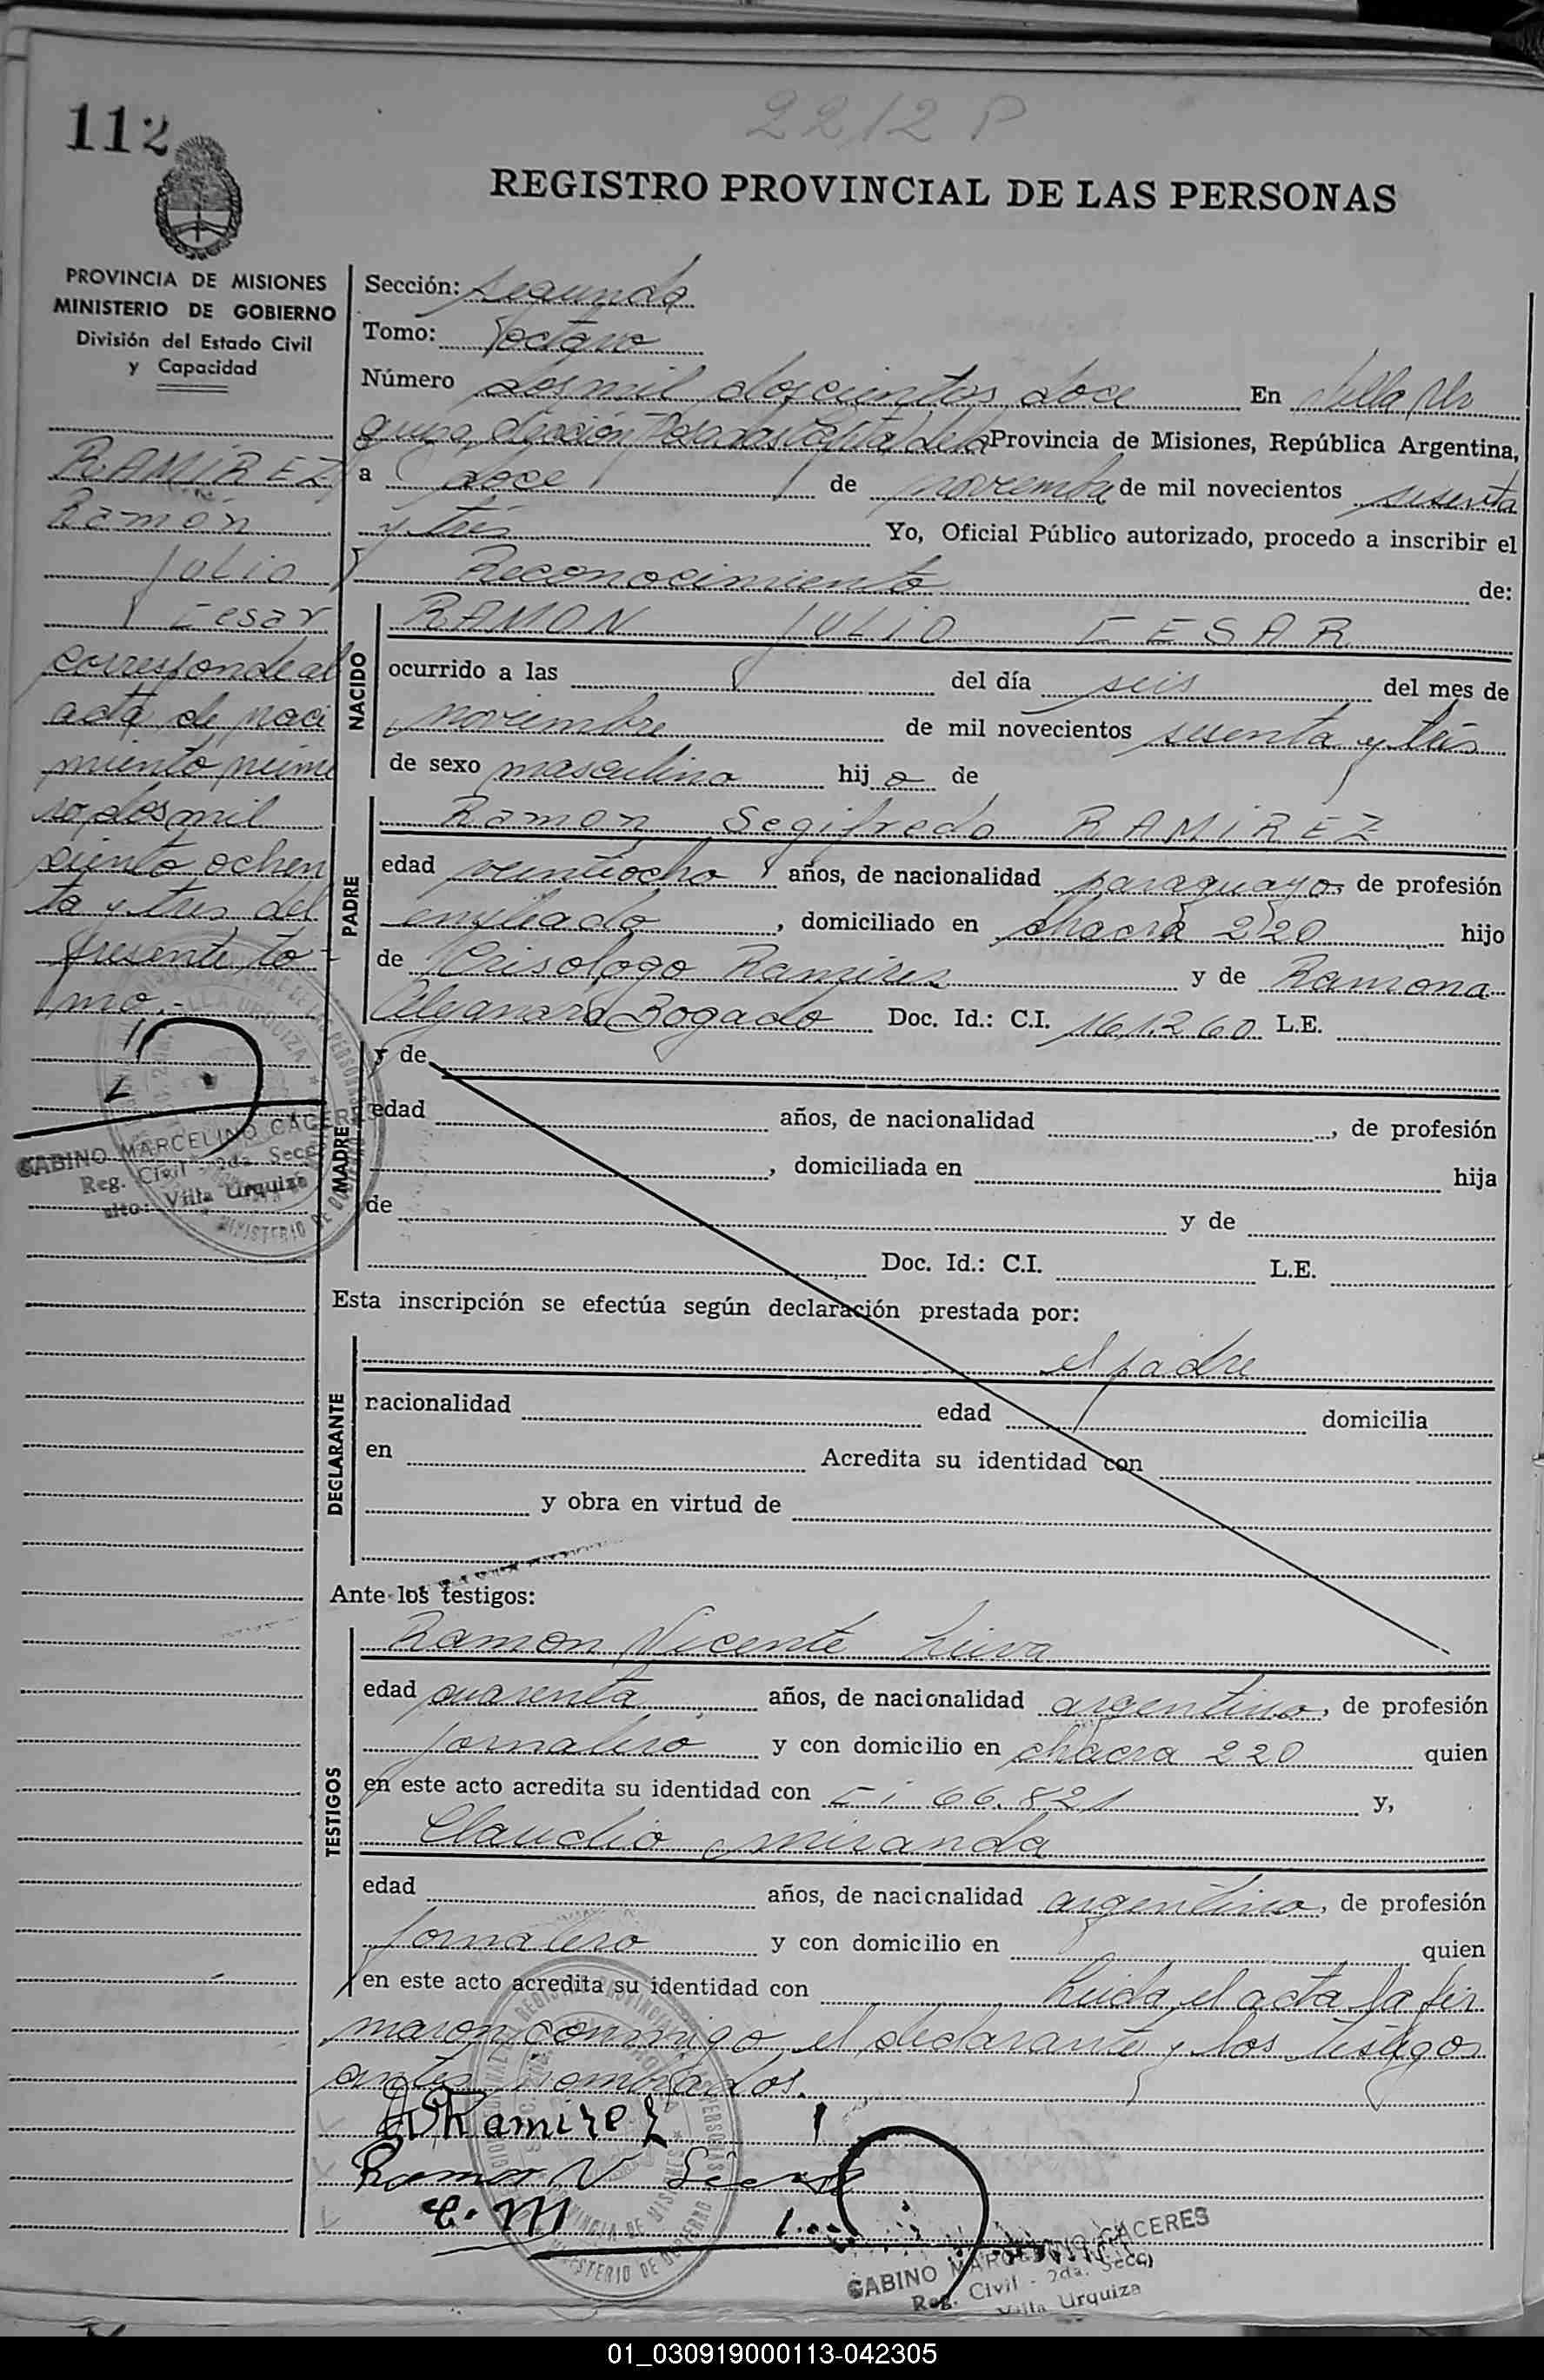 112
2212 P
REGISTRO PROVINCIAL DE LAS PERSONAS
PROVINCIA DE MISIONES
MINISTERIO DE GOBIERNO
División del Estado Civil
y Capacidad
RAMÍREZ
Ramón
Julio
Cesar
corresponde al
acta de naci
miento núme
ro dos mil
ciento ochen
ta y tres del
presente to-
mo.-
GABINO MARCELINO CACERES
Reg. Civil - 2da. Secc
Villa Urquiza
Sección: segunda
Tomo: octavo
Número dos mil doscientos doce En Villa Ur
quiza, Sección Posadas Capital de la Provincia de Misiones, República Argentina,
a doce de noviembre de mil novecientos sesenta
y tres Yo, Oficial Público autorizado, procedo a inscribir el
Reconocimiento de:
NACIDO
RAMON JULIO CESAR
ocurrido a las del día seis del mes de
noviembre de mil novecientos sesenta y tres
de sexo masculino hij o de
PADRE
Ramón Segifredo RAMÍREZ
edad veintiocho años, de nacionalidad paraguayo de profesión
empleado, domiciliado en chacra 220 hijo
de Crisologo Ramirez y de Ramona
Alejandra Bogado Doc. Id.: C.I. 161.260 L.E.
MADRE
y de
edad años, de nacionalidad , de profesión
, domiciliada en hija
de y de
Doc. Id.: C.I. L.E.
Esta inscripción se efectúa según declaración prestada por:
DECLARANTE
el padre
nacionalidad edad domicilia
en Acredita su identidad con
y obra en virtud de
Ante los testigos:
TESTIGOS
Ramon Vicente Leiva
edad cuarenta años, de nacionalidad argentino, de profesión
jornalero y con domicilio en chacra 220 quien
en este acto acredita su identidad con CI 66.821 y,
Claudio miranda
edad años, de nacionalidad argentino, de profesión
jornalero y con domicilio en quien
en este acto acredita su identidad con Leida el acta la fir
maron conmigo el declarante y los testigos
antes nombrados.
Ramirez
Ramon V Leiva
C. M
GABINO MARCELINO CACERES
Reg. Civil - 2da. Secc)
Villa Urquiza
01_030919000113-042305